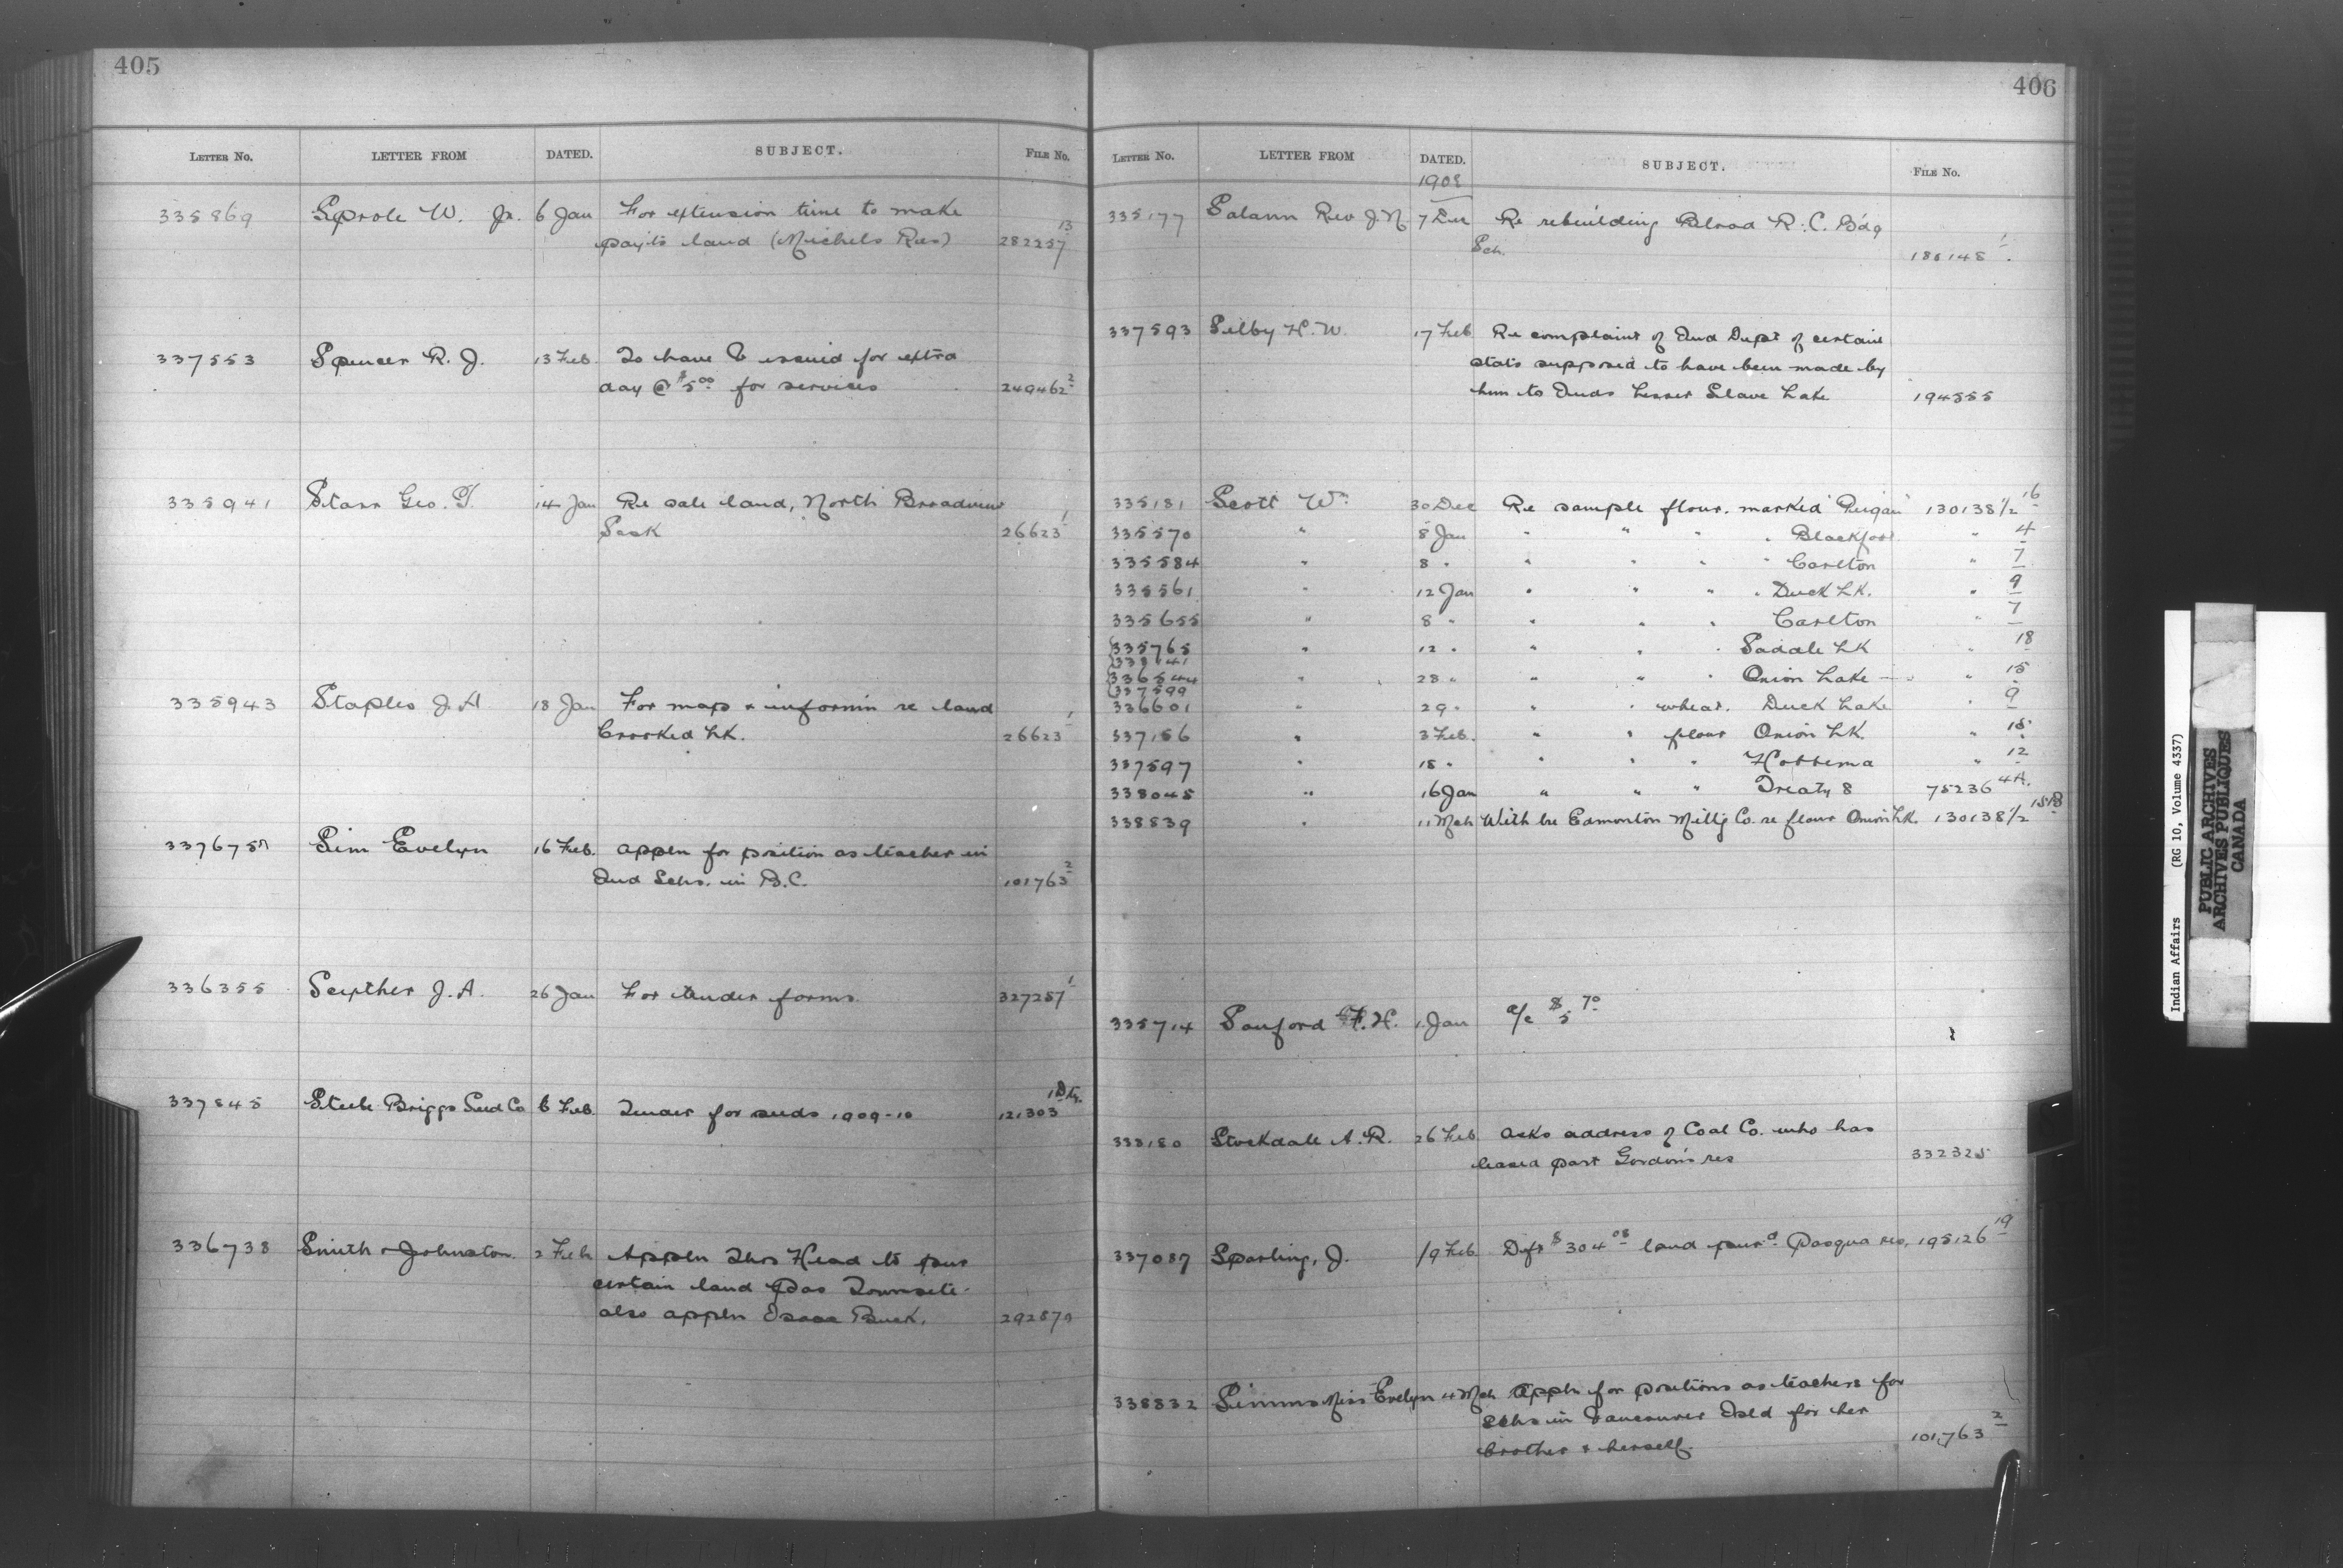 405
LETTER No. LETTER FROM DATED. SUBJECT. FILE No.
335869 Sprole W. Jr. 6 Jan For extension time to make
payts land (Michels Res) 282257 13
337553 Spencer R. J. 13 Feb. To have issued for extra
day @ $5 00 for services 249462 2
335941 Starr Geo. 14 Jan Re sale land, North Broadview
Sask 26623 1
335943 Staples J. A 18 Jan For map & informn re land
Crooked Lk. 26623 1
337675 Sim Evelyn 16 Feb. appln for position as teacher in
Ind Schs. in B.C. 101763 2
336355 Seyther J. A. 26 Jan For tender forms 327257 1
337845 Steele Briggs Seed Co 6 Feb. Tender for seeds 1909-10 121303
336738 Smith & Johnston. 2 Feb Appln Thos Head to pur
certain land Pas Townsite.
also appln Isaac Buck. 292579
406
LETTER No. LETTER FROM DATED. SUBJECT. FILE No.
1908
335177 Salaun Rev J. N 7 Dec Re rebuilding Blood R. C. Bdg
Sch. 186148 1
337593 Selby H. W. 17 Feb Re complaint of Ind Dept of certain
stats supposed to have been made by
him to Inds Lesser Slave Lake 194555
335181 Scott Wm 30 Dec Re sample flour. marked "Peigan" 130138 1/2 16
335570 " 8 Jan " " " " Blackfoot " 4
335584 " 8 " " " " " Carlton " 7
335561 " 12 Jan " " " " Duck Lk. " 9
335655 " 8 " " " " Carlton " 7
335765 " 12 " " " " Saddle Lk " 18
338141
336544 " 28 " " " " Onion Lake " 15
337599
336601 " 29 " " " wheat. Duck Lake " 9
337156 " 3 Feb. " " flour Onion Lk. " 15
337597 " 18 " " " " Hobbema " 12
338045 " 16 Jan " " " Treaty 8 75236 4A.
338839 " 11 Mch With lre Edmonton Millg Co. re flour Onion Lk. 130138 1/2
335714 Sanford F. H. 1 Jan a/c $5 70
333180 Stockdale A. R. 26 Feb asks address of Coal Co. who has
leased part Gordon's res 332325
337087 Sparling, J. 19 Feb. Dft $304 08 land purd. Pasqua res, 195126 19
338832 Simms Miss Evelyn 4 Mch Appln for positions as teachers for
Schs in Vancouver Isld for her
brother & herself. 101,763 2
Indian Affairs (RG 10, Volume 4337)
PUBLIC ARCHIVES
ARCHIVES PUBLIQUES
CANADA